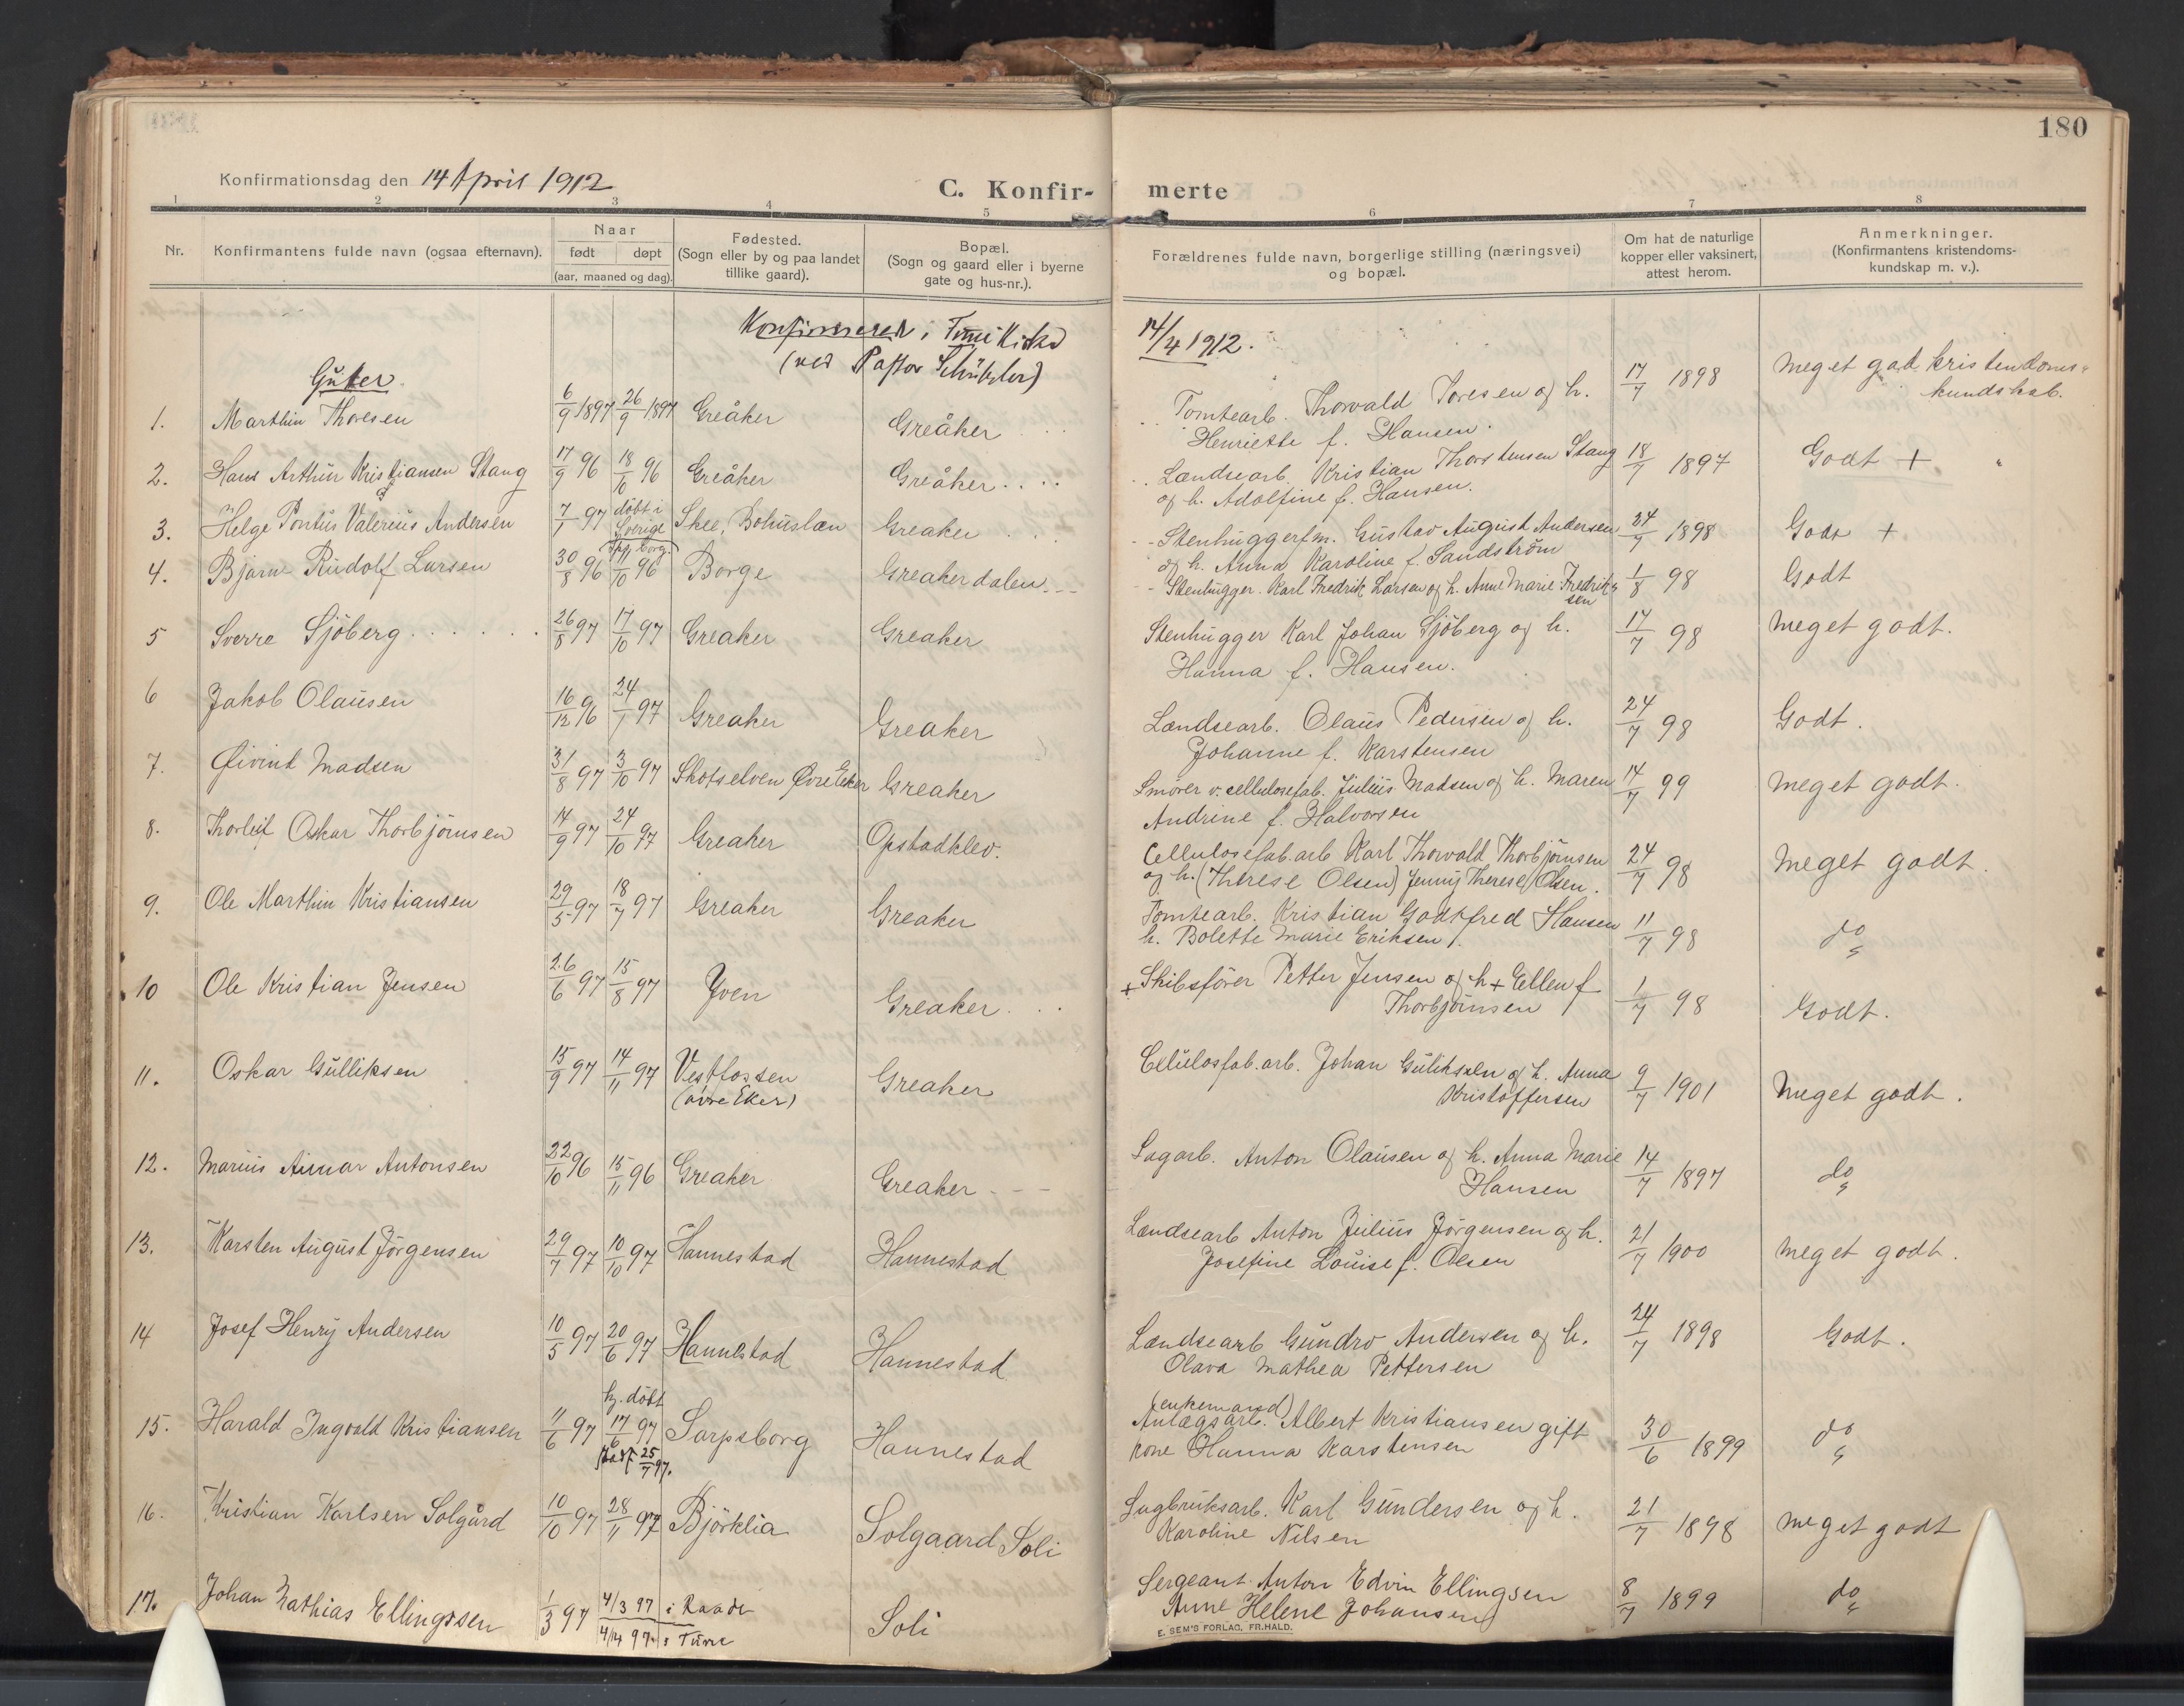 180
Konfirmationsdag den 14 April 1912
C. Konfir- merte
1 2 3 4 5 6 7 8
Nr. Konfirmantens fulde navn (ogsaa efternavn). Naar født døpt (aar, maaned og dag). Fødested. (Sogn eller by og paa landet tillike gaard). Bopæl. (Sogn og gaard eller i byerne gate og hus-nr.). Forældrenes fulde navn, borgerlige stilling (næringsvei) og bopæl. Om hat de naturlige kopper eller vaksinert, attest herom. Anmerkninger. (Konfirmantens kristendoms- kundskap m. v.).
Konfirmerede i Tune Kirke 14/4 1912.
(ved Pastor
Gutter
1. Marthin Thoresen 6/9 1897 26/9 1897 Greåker Greåker Tomtearb. Thorvald Toresen og h. 17/7 1898 Meget god kristendoms-
Henriette f. Hansen. kundskab.
2. Hans Arthur Kristiansen Stang 17/9 96 18/10 96 Greåker Greåker Lændsearb. Kristian Thorstensen Stang 18/7 1897 Godt +
og h. Adolfine f. Hansen.
3. Helge Pontus Valerius Andersen 7/1 97 döbt i Sverige Skee, Bohuslæn Greaker Stenhuggerfm. Gustav August Andersen 24/7 1898 Godt +
og h. Anna Karoline f. Sandström
4. Bjarne Rudolf Larsen 30/8 96 11/10 96 Borge Greakerdalen Stenhugger. Karl Fredrik Larsen og h. Anne Marie Fredrik- 1/8 98 Godt
sen
5 Sverre Sjöberg 26/8 97 17/10 97 Greaker Greaker Stenhugger Karl Johan Sjöberg og h. 17/7 98 Meget godt.
Hanna f. Hansen.
6 Jakob Olausen 16/12 96 24/1 97 Greaker Greaker Lændsearb. Olaus Pedersen og h. 24/7 98 Godt.
Johanne f. Karstensen
7. Øivind Madsen 31/8 97 3/10 97 Skotselven Øvre Eker Greaker Smörer v. cellulosefab. Julius Madsen og h. Maren 14/7 99 Meget godt.
Andrine f. Halvorsen
8. Thorleif Oskar Thorbjörnsen 14/9 97 24/10 97 Greaker Opstadklev. Cellulosefab.arb Karl Thorvald Thorbjörnsen 24/7 98 Meget godt.
og h. (Therese Olsen) Jenny Therese Olsen.
9. Ole Marthin Kristiansen 29/5 97 18/7 97 Greaker Greaker Tomtearb. Kristian Godtfred Hansen 11/7 98 do
h. Bolette Marie Eriksen
10 Ole Kristian Jensen 26/6 97 15/8 97 Yven Greaker + Skibsförer Petter Jensen og h + Ellen f 1/7 98 Godt.
Thorbjörnsen
11. Oskar Gulliksen 15/9 97 14/11 97 Vestfossen (övre Eker) Greaker Cellulosfab.arb. Johan Guliksen og h. Anna 9/7 1901 Meget godt.
Kristoffersen
12. Marius Aimar Antonsen 22/10 96 15/11 96 Greaker Greaker Sagarb. Anton Olausen og h. Anna Marie 14/7 1897 do
Hansen
13. Karsten August Jörgensen 29/7 97 10/10 97 Hannestad Hannestad Lændsearb Anton Julius Jörgensen og h. 21/7 1900 Meget godt.
Josefine Louise f. Olsen
14 Josef Henry Andersen 10/5 97 20/6 97 Hannestad Hannestad Lændsearb Gundro Andersen og h. 24/7 1898 Godt.
Olava Mathea Pettersen
hj. döbt (enkemand)
15. Harald Ingvald Kristiansen 11/6 97 17/6 97 Sarpsborg Hannestad Anlægsarb. Albert Kristiansen gift 30/6 1899 do
stadf 25/7 97. kone Hanna Karstensen
16. Kristian Karlsen Solgård 10/10 97 28/11 97 Björklia Solgaard Soli Sagbruksarb. Karl Gundersen og h. 21/7 1898 Meget godt
Karoline Nilsen
17. Johan Mathias Ellingssen 1/3 97 4/3 97 i Raade Soli Sergeant Anton Edvin Ellingsen 8/7 1899 do
4/4 97 i Tune Anne Helene Johansen
E. SEM'S FORLAG, FR.HALD.